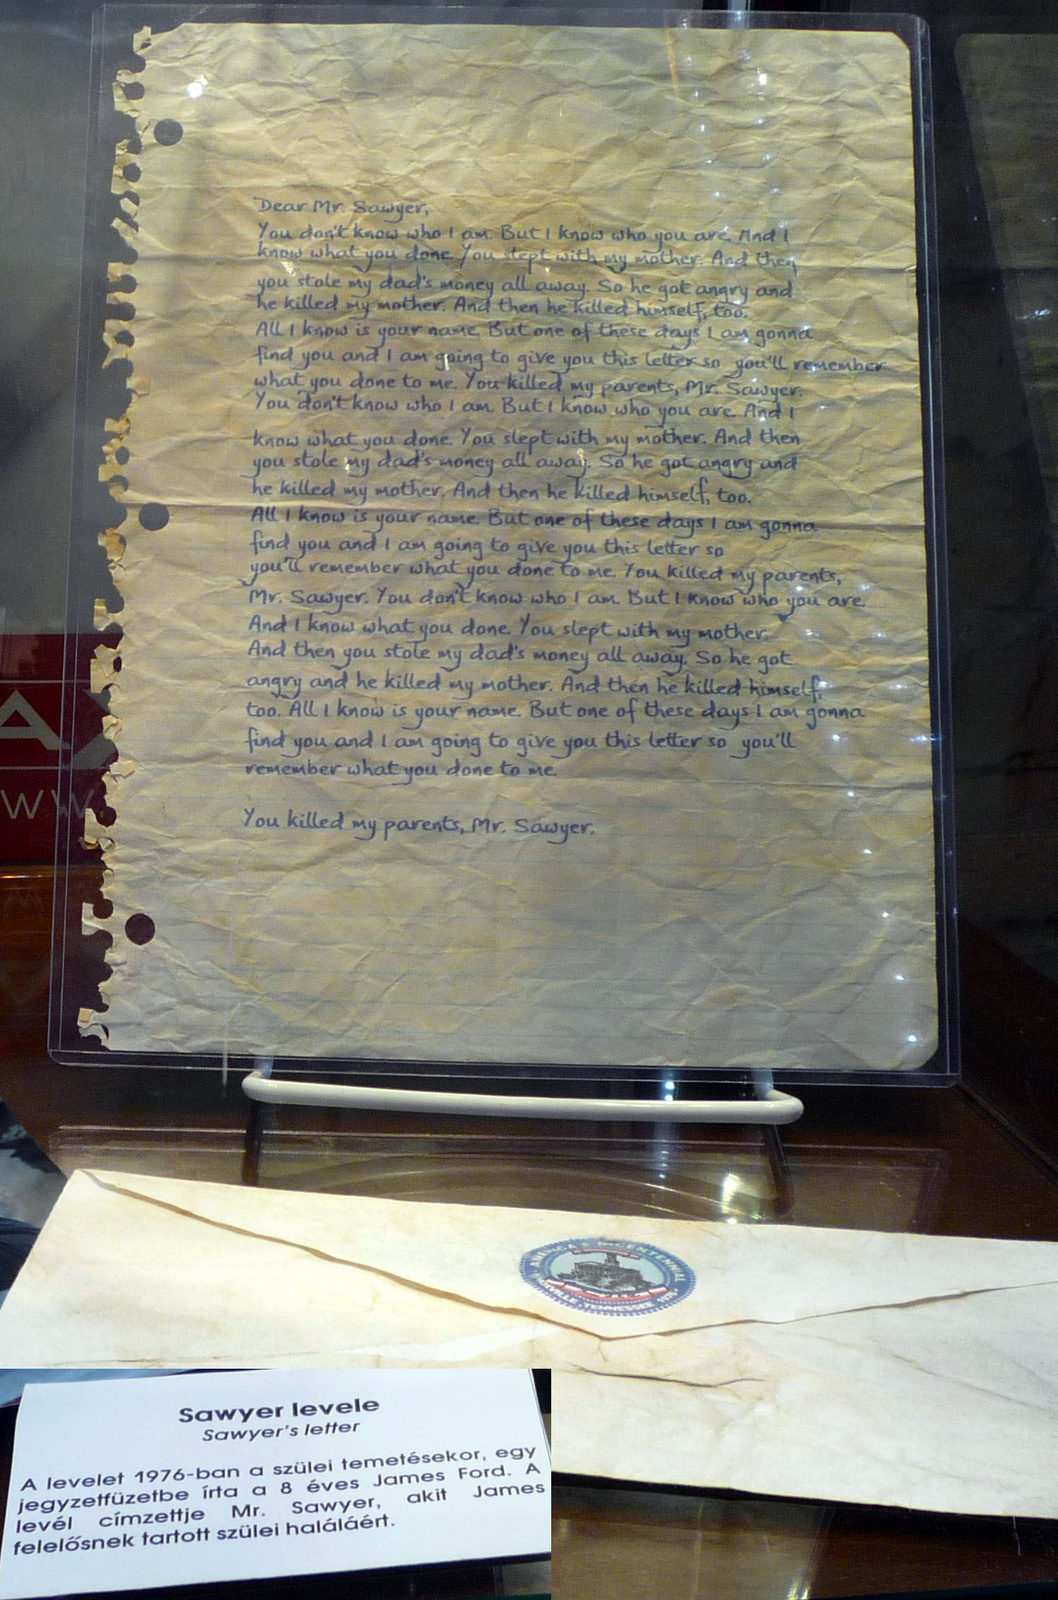 Dear Mr. Sawyer,
You don't know who I am. But I know who you are. And I
know what you done. You slept with my mother. And then
you stole my dad's money all away. So he got angry and
he killed my mother. And then he killed himself, too.
All I know is your name. But one of these days I am gonna
find you and I am going to give you this letter so you'll remember
what you done to me. You killed my parents, Mr. Sawyer.
You don't know who I am. But I know who you are. And I
know what you done. You slept with my mother. And then
you stole my dad's money all away. So he got angry and
he killed my mother. And then he killed himself, too.
All I know is your name. But one of these days I am gonna
find you and I am going to give you this letter so
you'll remember what you done to me. You killed my parents,
Mr. Sawyer. You don't know who I am. But I know who you are.
And I know what you done. You slept with my mother.
And then you stole my dad's money all away. So he got
angry and he killed my mother. And then he killed himself,
too. All I know is your name. But one of these days I am gonna
find you and I am going to give you this letter so you'll
remember what you done to me.
You killed my parents, Mr. Sawyer.
AMERICA'S BICENTENNIAL
KNOXVILLE, TENNESSEE 1976
Sawyer levele
Sawyer's letter
A levelet 1976-ban a szülei temetésekor, egy
jegyzetfüzetbe írta a 8 éves James Ford. A
levél címzettje Mr. Sawyer, akit James
felelősnek tartott szülei haláláért.